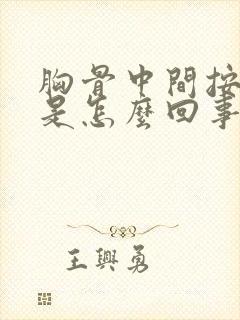 胸骨中間按
是怎麼回事
王興勇